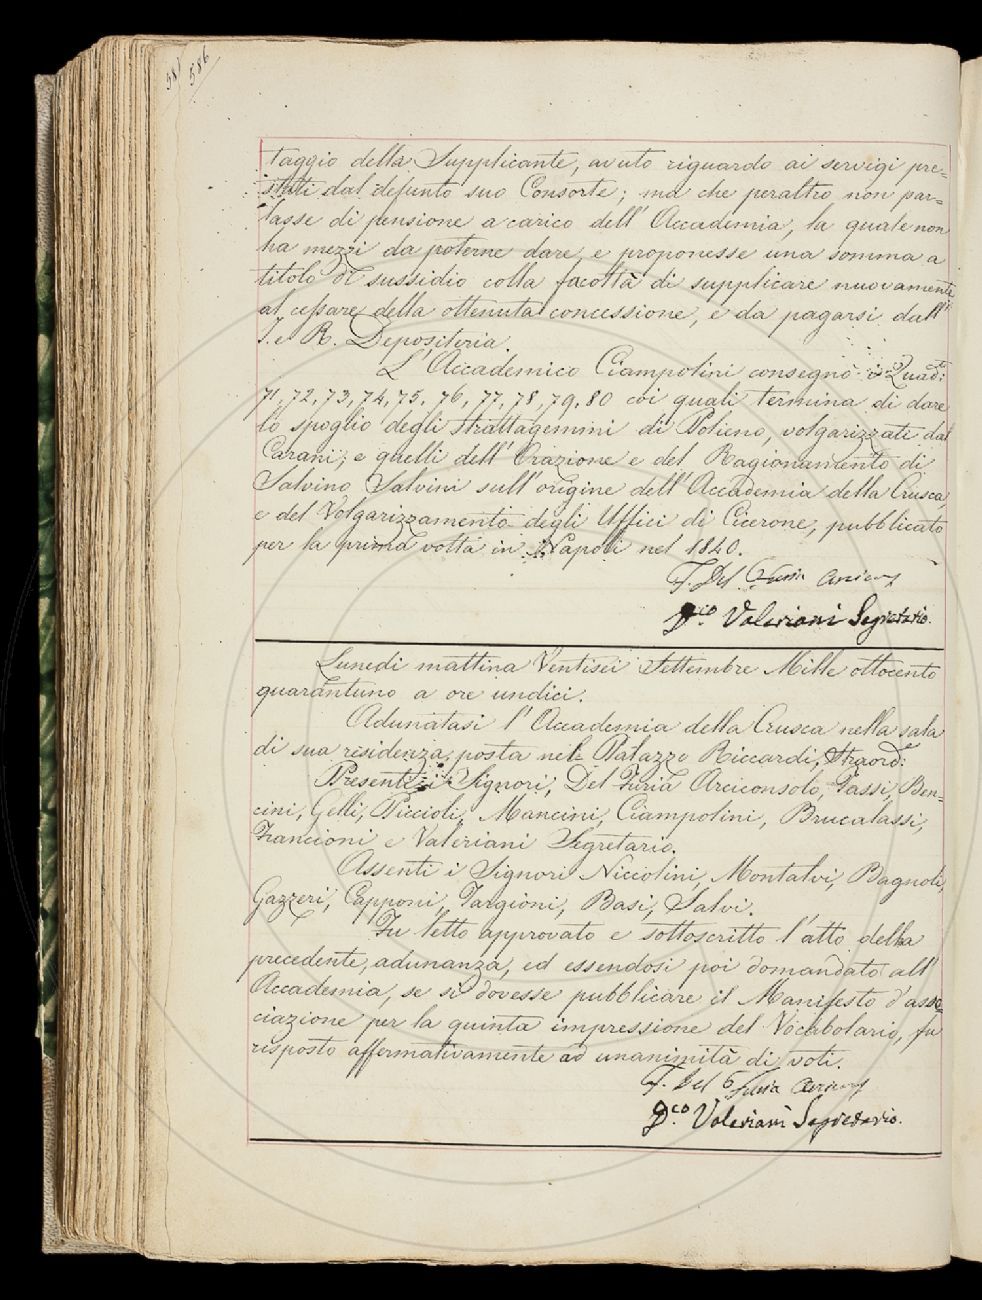 585 586
taggio della Supplicante, avuto riguardo ai servigi pre=
stati dal defunto suo Consorte; ma che peraltro non par=
lasse di pensione a carico dell'Accademia, la quale non
ha mezzi da poterne dare, e proponesse una somma a
titolo di sussidio colla facoltà di supplicare nuovamente
al cessare della ottenuta concessione, e da pagarsi dall'
I. e R. Depositeria.
L'Accademico Ciampolini consegnò i Quad:ti
71, 72, 73, 74, 75, 76, 77, 78, 79, 80 coi quali termina di dare
lo spoglio degli Strattagemmi di Polieno, volgarizzati dal
Carani; e quelli dell'Orazione e del Ragionamento di
Salvino Salvini sull'origine dell'Accademia della Crusca,
e del Volgarizzamento degli Uffici di Cicerone, pubblicato
per la prima volta in Napoli nel 1840.
F. Del Furia
D.co Valeriani Segretario.
Lunedì mattina Ventisei Settembre Mille ottocento
quarantuno a ore undici.
Adunatasi l'Accademia della Crusca nella sala
di sua residenza, posta nel Palazzo Riccardi, Straord:
Presenti i Signori, Del Furia Arciconsolo, Tassi, Ben=
cini, Gelli, Piccioli, Mancini, Ciampolini, Brucalassi,
Francioni e Valeriani Segretario.
Assenti i Signori Niccolini, Montalvi, Bagnoli,
Gazzeri, Capponi, Targioni, Basi, Salvi.
Fu letto approvato e sottoscritto l'atto della
precedente, adunanza, ed essendosi poi domandato all'
Accademia, se si dovesse pubblicare il Manifesto d'asso
ciazione per la quinta impressione del Vocabolario, fu
risposto affermativamente ad unanimità di voti.
F. Del Furia
D.co Valeriani Segretario.